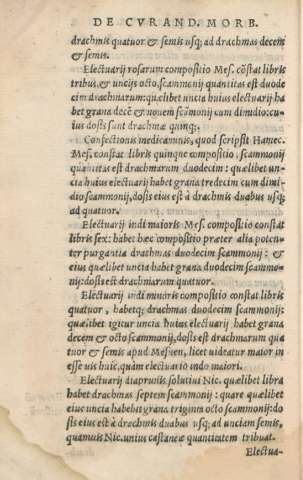 DE CVRAND. MORB.
drachmis quatuor & semis usq; ad drachmas decem
& semis.
Electuarij rosarum compositio Mes. cōstat libris
tribus, & uncijs octo, scammonij quantitas est duode
cim drachmarum: quælibet uncia huius electuarij ha
bet grana decē & nouem scāmonij cum dimidio: cu
ius dosis sunt drachmæ quinq;.
Confectionis medicaminis, quod scripsit Hamec.
Mes. constat libris quinque compositio, scammonij
quantitas est drachmarum duodecim: quælibet un-
cia huius electuarij habet grana tredecim cum dimi-
dio scammonij, dosis eius est à drachmis duabus usq;
ad quatuor.
Electuarij indi maioris Mes. compositio constat
libris sex: habet hæc compositio præter alia poten-
ter purgantia drachmas duodecim scammonij: &
eius quælibet uncia habet grana duodecim scammo-
nij: dosis est drachmarum quatuor.
Electuarij indi minoris compositio constat libris
quatuor, habetq; drachmas duodecim scammonij:
quælibet igitur uncia huius electuarij habet grana
decem & octo scammonij, dosis est drachmarum qua
tuor & semis apud Mesuen, licet uideatur maior in-
esse uis huic, quàm electuario indo maiori.
Electuarij diaprunis solutiui Nic. quælibet libra
habet drachmas septem scammonij: quare quælibet
eius uncia habebat grana triginta octo scammonij: do
sis eius est à drachmis duabus usq; ad unciam semis,
quamuis Nic. unius castaneæ quantitatem tribuat.
Electua-